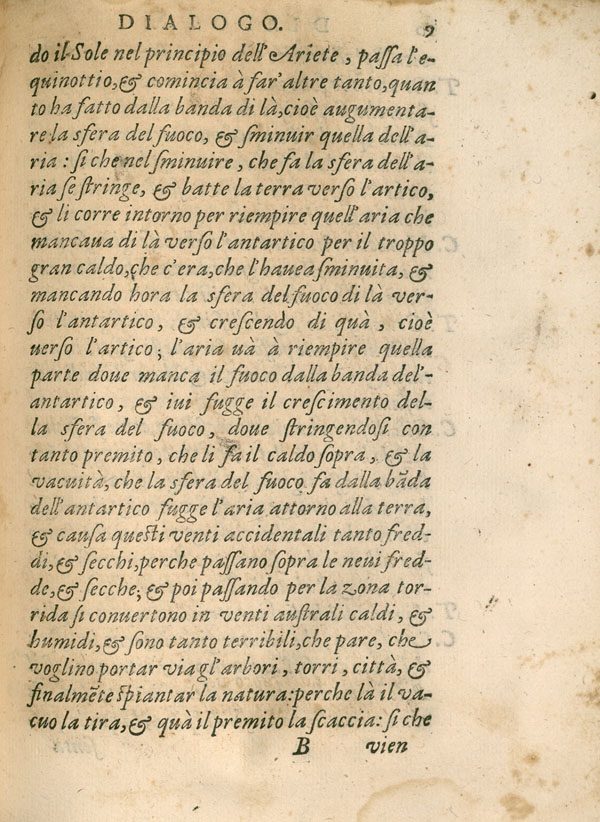 DIALOGO. 9
do il Sole nel principio dell'Ariete, passa l'e-
quinottio, & comincia à far'altre tanto, quan
to ha fatto dalla banda di là, cioè augumenta-
re la sfera del fuoco, & sminuir quella dell'a-
ria: si che nel sminuire, che fa la sfera dell'a-
ria se stringe, & batte la terra verso l'artico,
& li corre intorno per riempire quell'aria che
mancaua di là verso l'antartico per il troppo
gran caldo, che c'era, che l'hauea sminuita, &
mancando hora la sfera del fuoco di là ver-
so l'antartico, & crescendo di quà, cioè
uerso l'artico; l'aria uà à riempire quella
parte doue manca il fuoco dalla banda del'-
antartico, & iui fugge il crescimento del-
la sfera del fuoco, doue stringendosi con
tanto premito, che li fa il caldo sopra, & la
vacuità, che la sfera del fuoco fa dalla bāda
dell'antartico fugge l'aria attorno alla terra,
& causa questi venti accidentali tanto fred-
di, & secchi, perche passano sopra le neui fred-
de, & secche; & poi passando per la zona tor-
rida si conuertono in venti australi caldi, &
humidi, & sono tanto terribili, che pare, che
voglino portar via gl'arbori, torri, città, &
finalmēte spiantar la natura: perche là il va-
cuo la tira, & quà il premito la scaccia: si che
B vien